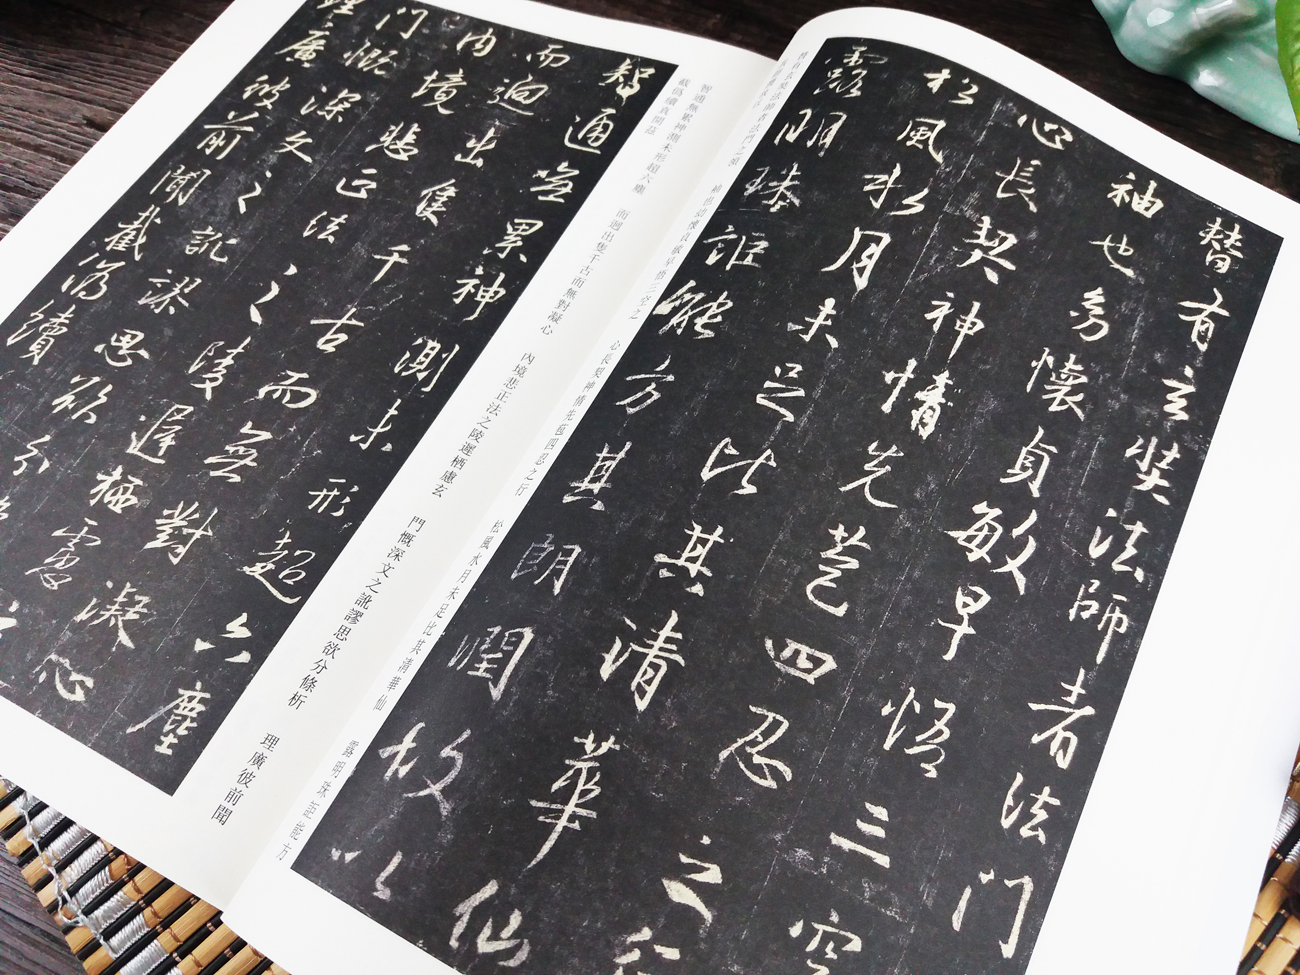 替有玄奘法師者法門
袖也幼懷貞敏早悟三空
心長契神情先苞四忍之行
松風水月未足比其清華仙
露明珠詎能方其朗潤故以
智通無累神測未形超六塵
而迥出隻千古而無對凝心
內境悲正法之陵遲栖慮玄
門慨深文之訛謬思欲分
理廣彼前聞截偽續
心長契神情先苞四忍之行
松風水月未足比其清華仙
露明珠詎能方
智通無累神測未形超六塵
而迥出隻千古而無對凝心
內境悲正法之陵遲栖慮玄
門慨深文之訛謬思欲分條析
理廣彼前聞
截偽續真開茲